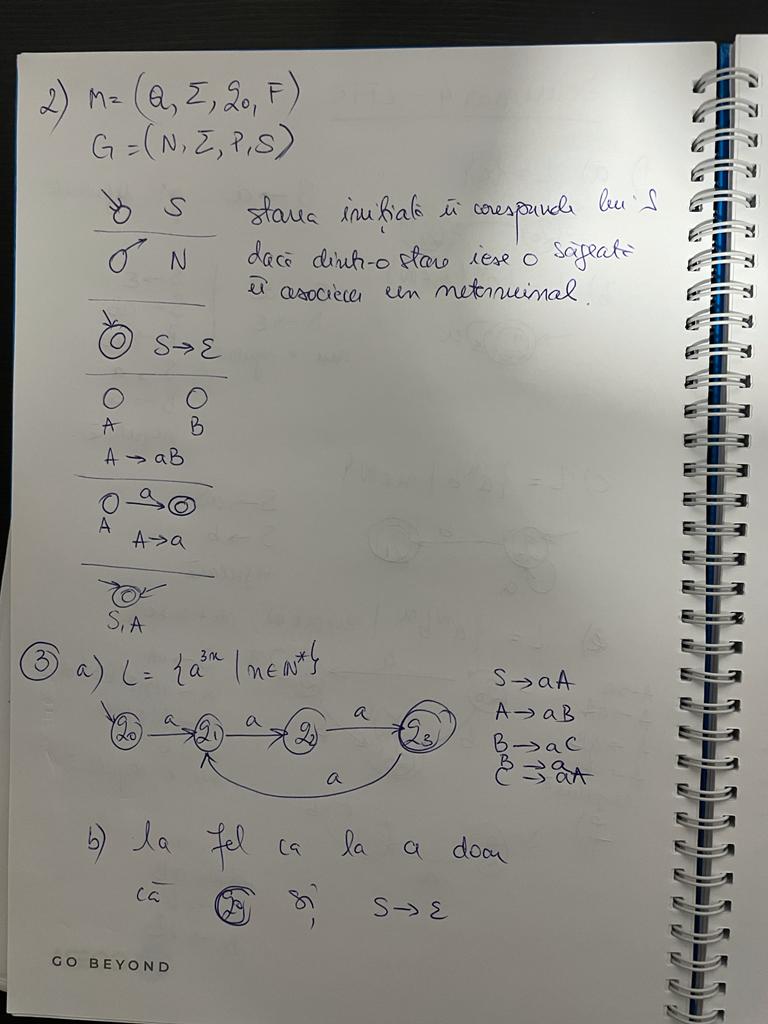 2) M = (Q, Σ, q0, F)
G = (N, Σ, P, S)
S starea inițială îi corespunde lui S
N dacă dintr-o stare iese o săgeată
îi asociem un neterminal.
S → ε
A B
A → aB
a
A
A → a
S, A
③ a) L = {a^3n | n ∈ N*}
S → aA
q0 a q1 a q2 a q3
A → aB
B → aC
B → a
C → aA
a
b) la fel ca la a doar
că q0 și S → ε
GO BEYOND